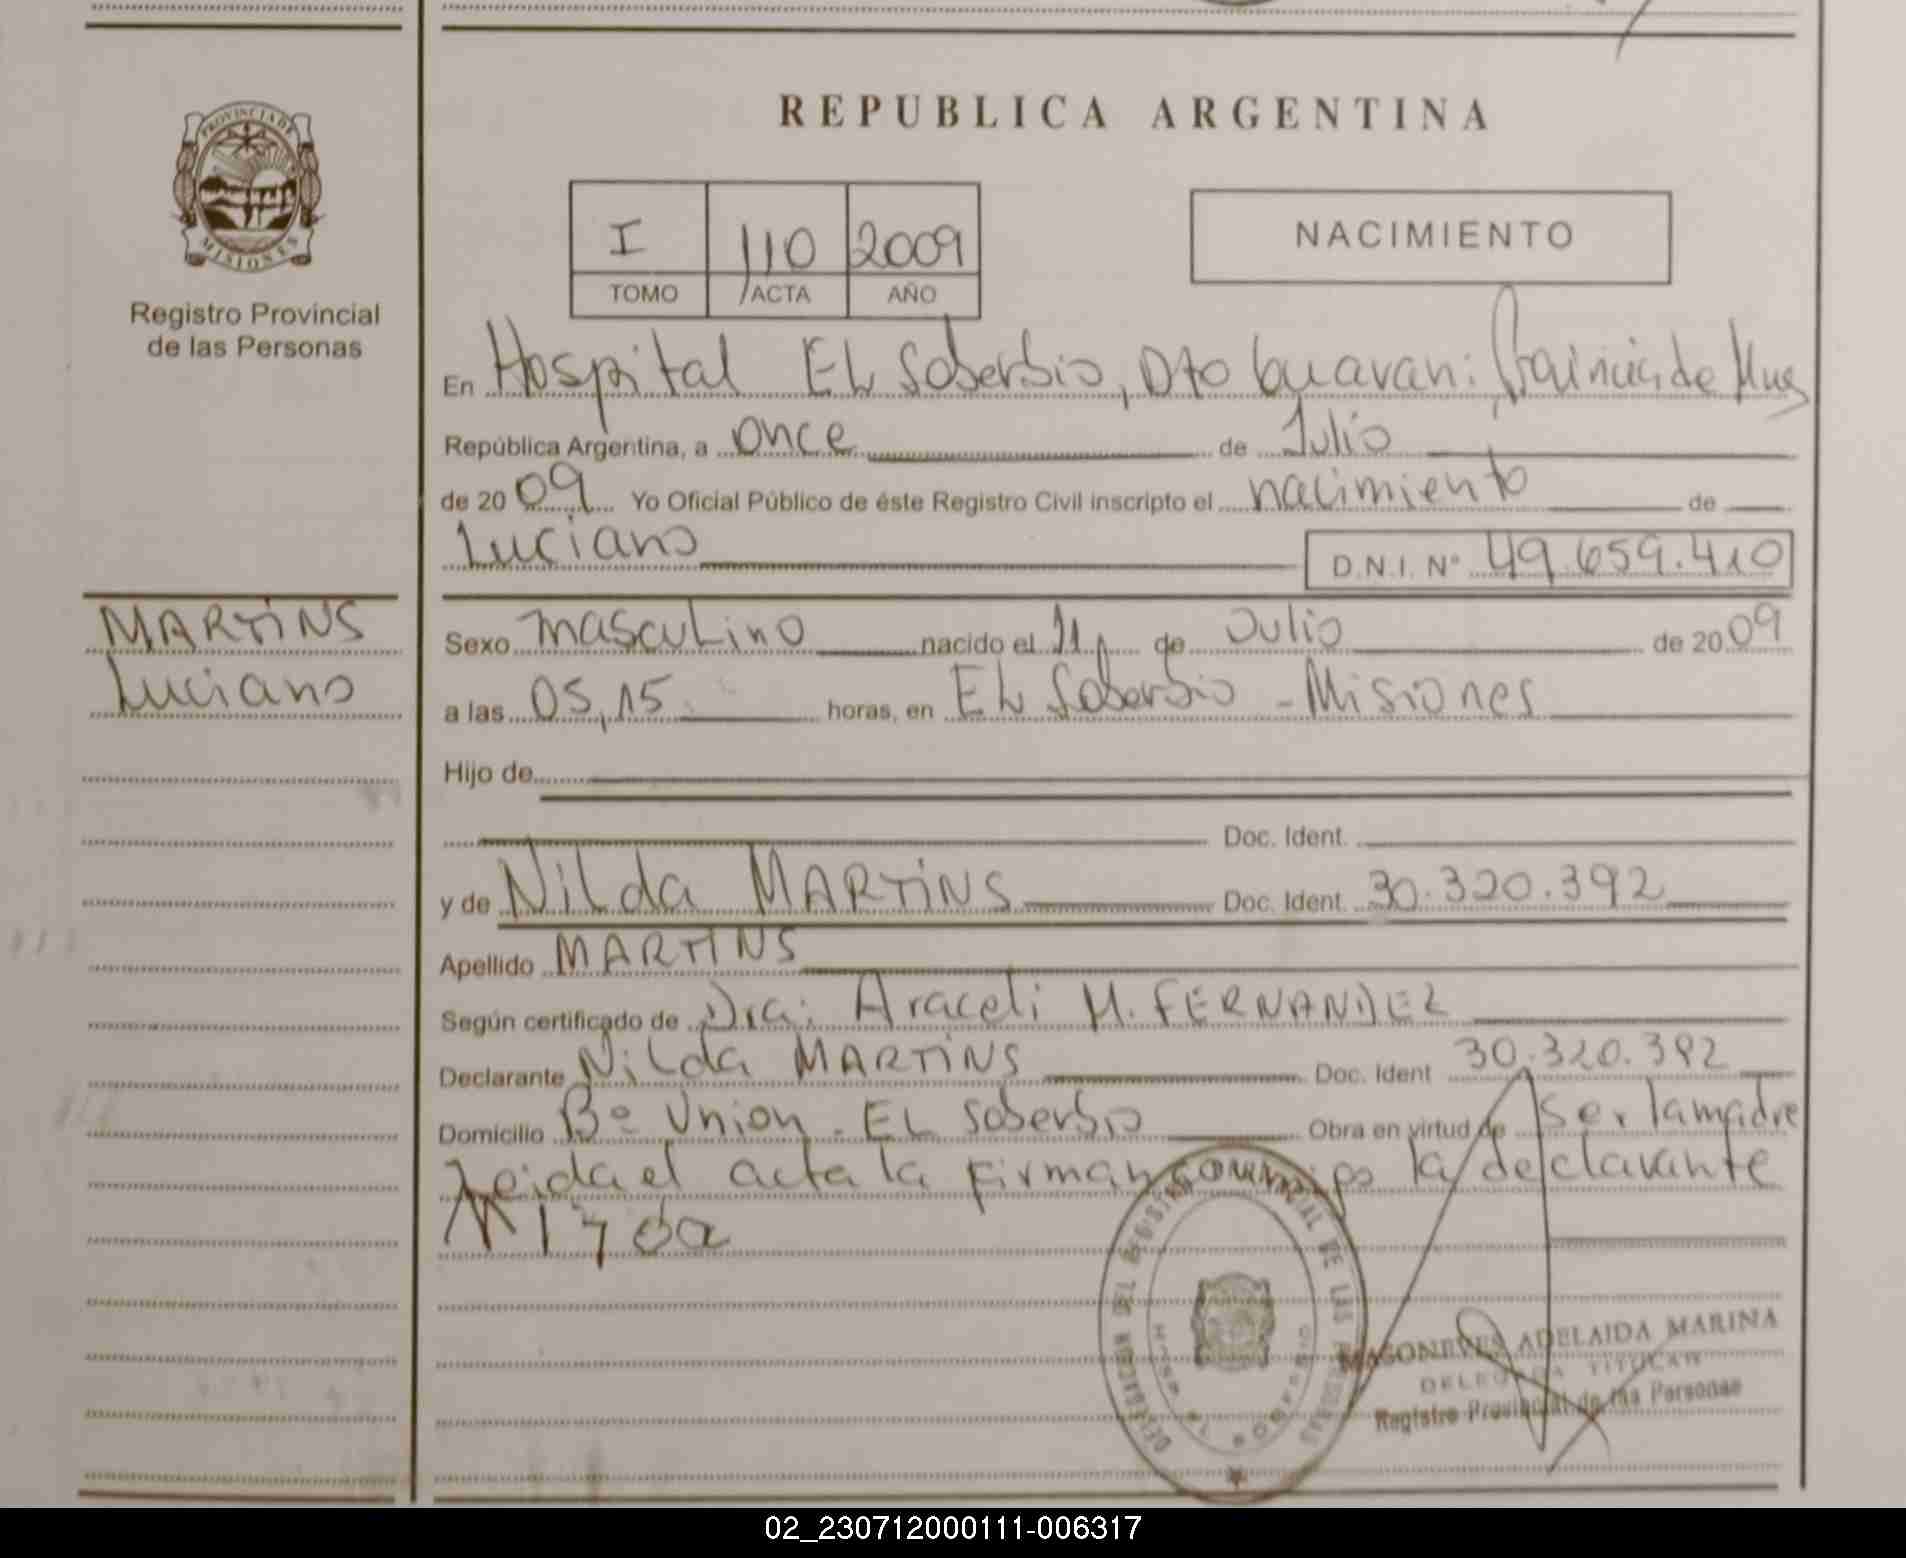 REPUBLICA ARGENTINA
PROVINCIA DE MISIONES
Registro Provincial
de las Personas
I 110 2009
TOMO ACTA AÑO
NACIMIENTO
En Hospital EL Soberbio, Dto Guaraní Provincia de
República Argentina, a once de Julio
de 2009 Yo Oficial Público de éste Registro Civil inscripto el nacimiento de
Luciano D.N.I. Nº 49.659.410
MARTiNS
Luciano
Sexo masculino nacido el 11 de Julio de 2009
a las 05,15 horas, en EL Soberbio - Misiones
Hijo de
Doc. Ident.
y de Nilda MARTiNS Doc. Ident. 30.320.392
Apellido MARTINS
Según certificado de Dra: Araceli M. FERNANDEZ
Declarante Nilda MARTiNS Doc. Ident 30.320.392
Domicilio Bº Union - EL Soberbio Obra en virtud de ser la madre
Leida el acta la firman la declarante
DELEGACION DEL REGISTRO PROVINCIAL DE LAS PERSONAS
ADELAIDA MARINA
DELEGADA TITULAR
Registro Provincial de las Personas
02_230712000111-006317